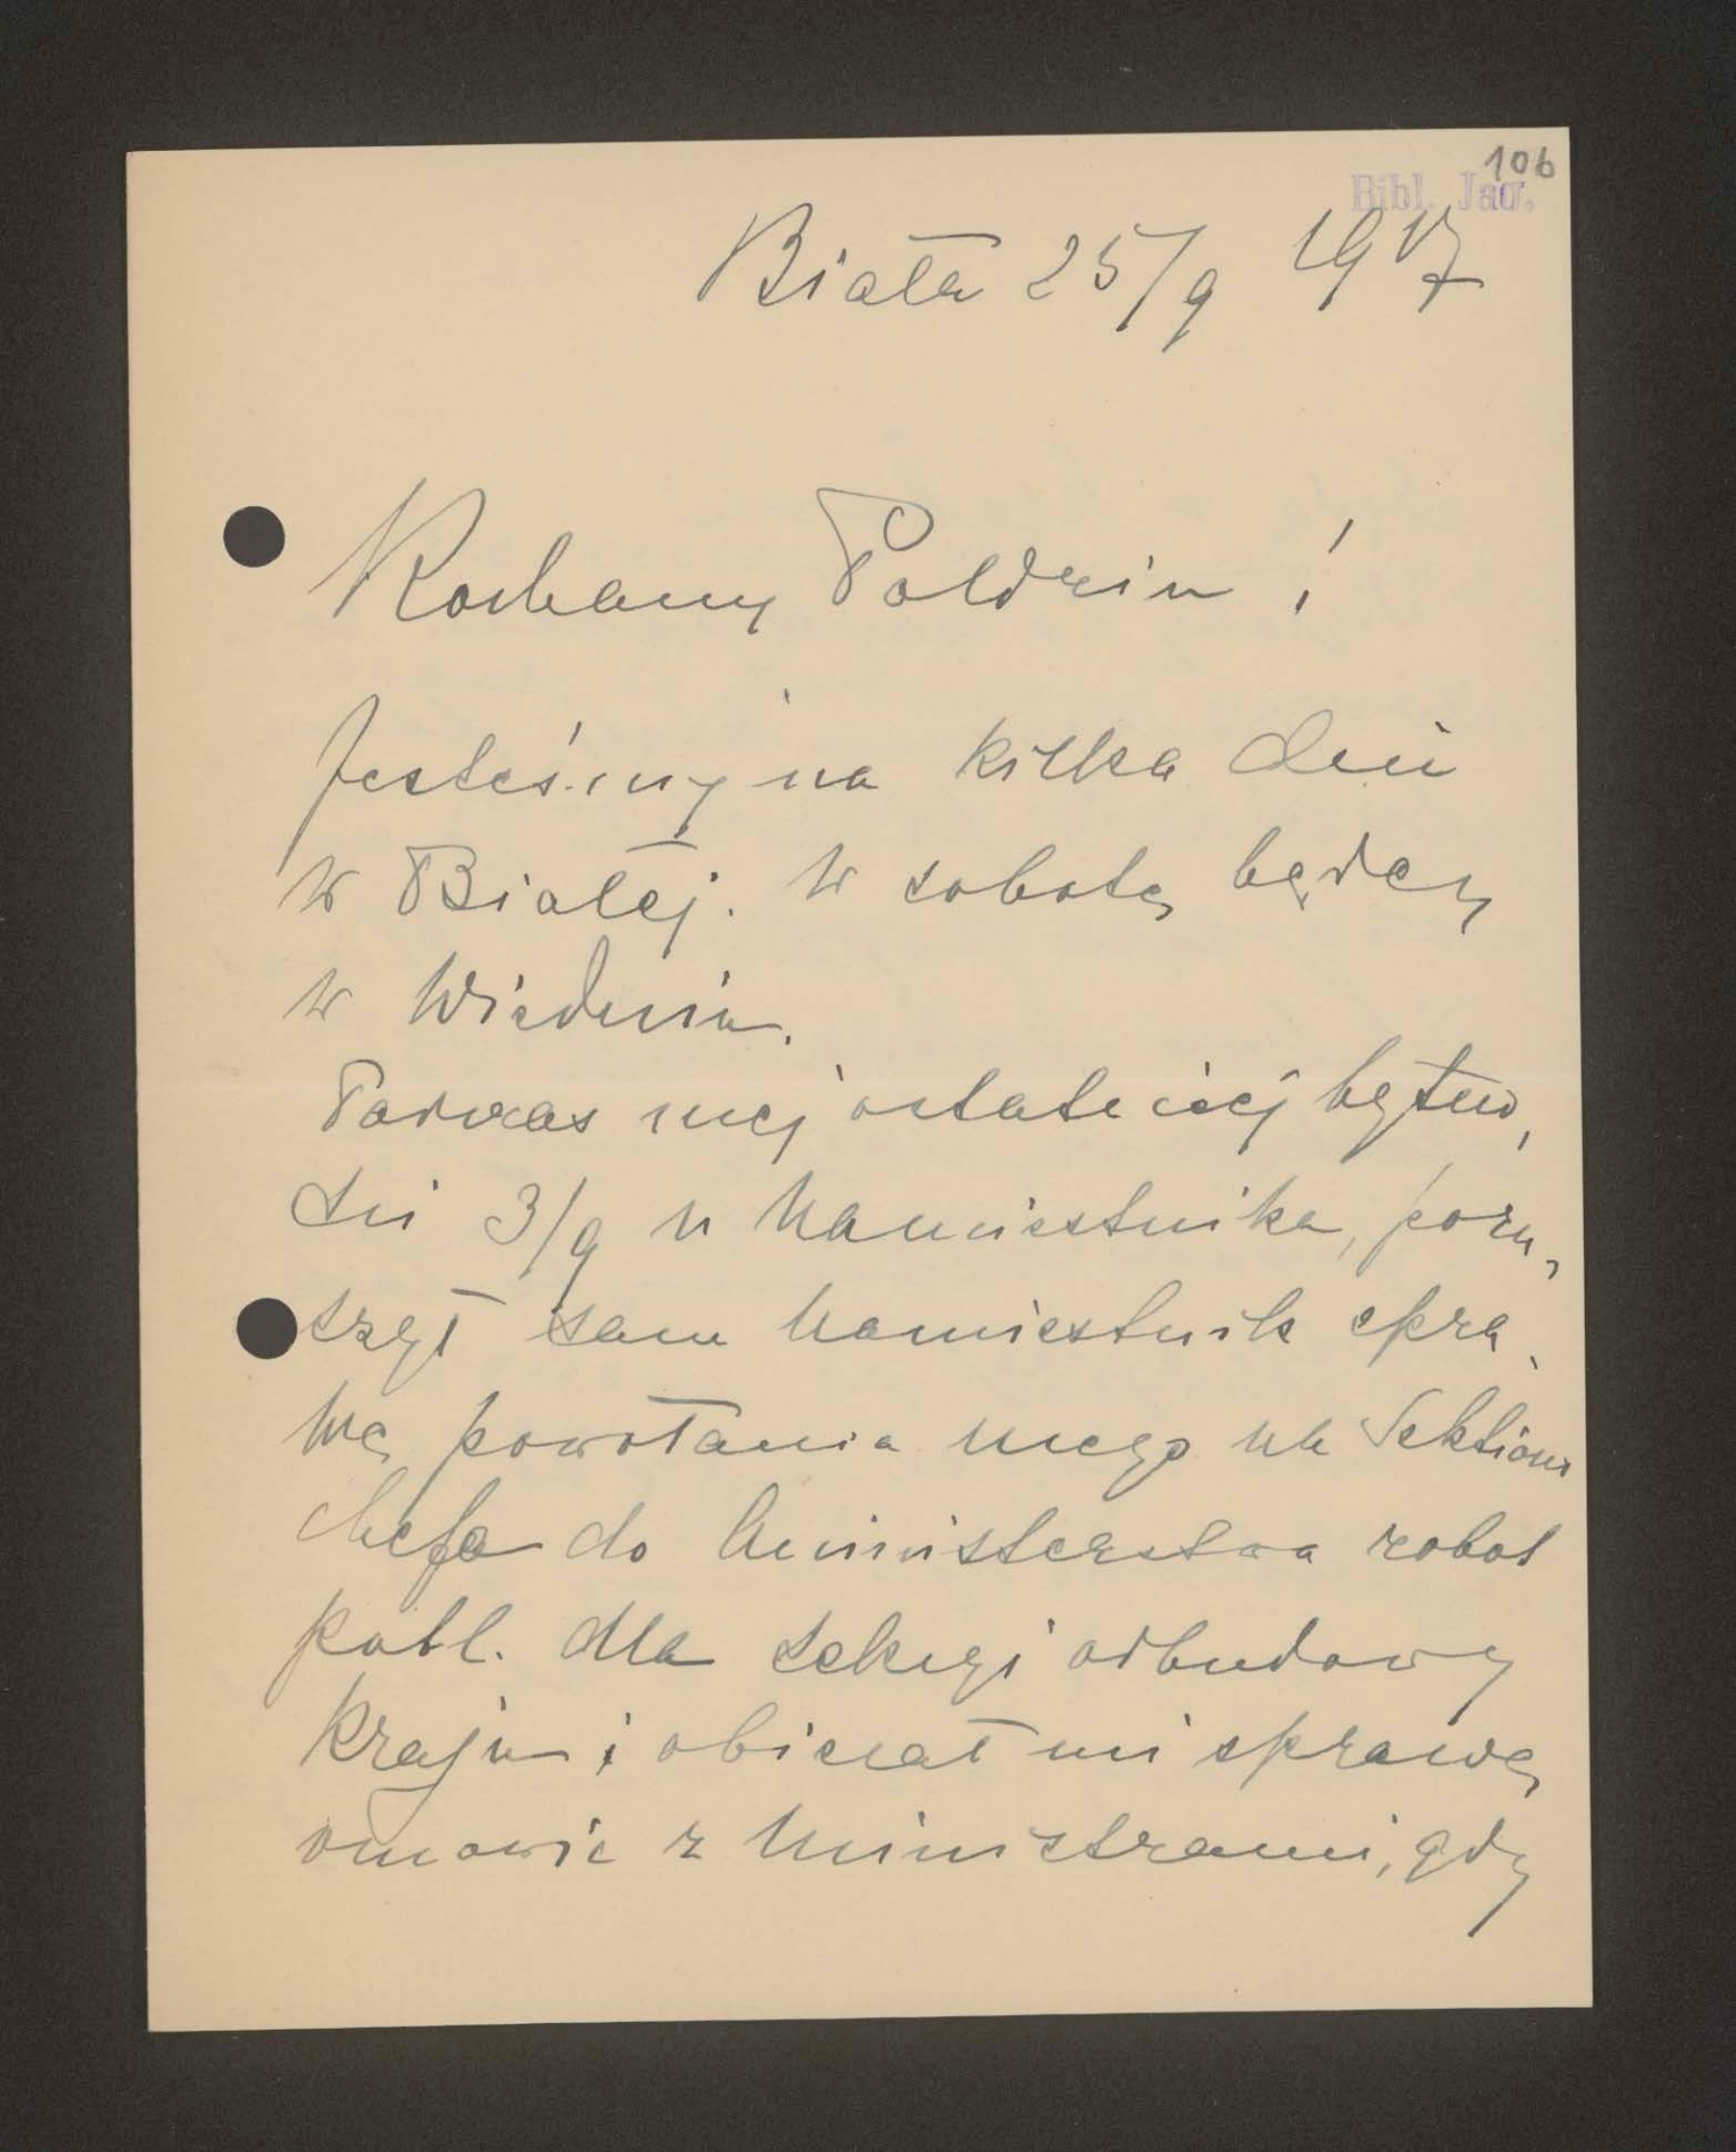 106
Bibl. Jag.
Biała 25/9 1917
Kochany Poldziu!
Jesteśmy na kilka dni
w Białej. W sobotę będę
w Wiedniu.
Podczas mej ostatniej bytno,
ści 3/9 u Namiestnika, poru,
szył sam Namiestnik spra,
wę powołania mego na Sektions
chefa do Ministerstwa robot
publ. dla sekcyi odbudowy
Kraju i obiecał mi sprawę
omowic z Ministrami, gdy